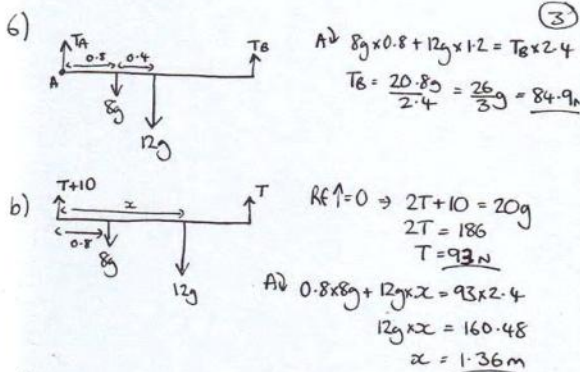 3
6)
T_A
T_B
0.8
0.4
A
8g
12g
A↓ 8g×0.8 + 12g×1.2 = T_B×2.4
T_B = 20.8g/2.4 = 26/3 g = 84.9N
b)
T+10
x
T
0.8
8g
12g
RF↑=0 ⇒ 2T+10 = 20g
2T = 186
T = 93N
A↓ 0.8×8g + 12g×x = 93×2.4
12g×x = 160.48
x = 1.36m